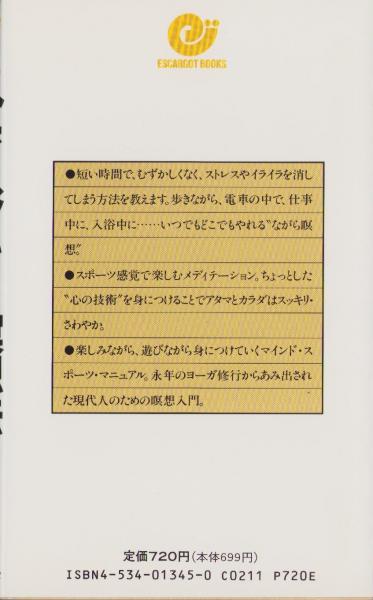 ESCARGOT BOOKS
●短い時間で、むずかしくなく、ストレスやイライラを消し
てしまう方法を教えます。歩きながら、電車の中で、仕事
中に、入浴中に……いつでもどこでもやれる“ながら瞑
想”。
●スポーツ感覚で楽しむメディテーション。ちょっとした
“心の技術”を身につけることでアタマとカラダはスッキリ・
さわやか。
●楽しみながら、遊びながら身につけていくマインド・ス
ポーツ・マニュアル。永年のヨーガ修行からあみ出され
た現代人のための瞑想入門。
定価720円（本体699円）
ISBN4-534-01345-0 C0211 P720E